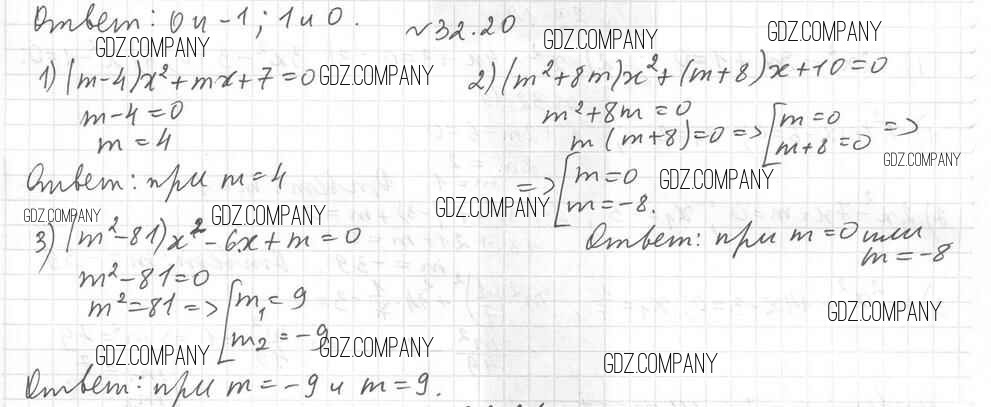 Ответ: 0 и -1; 1 и 0.
№32.20
GDZ.COMPANY GDZ.COMPANY GDZ.COMPANY
1) (m-4)x²+mx+7=0 GDZ.COMPANY
m-4=0
m=4
Ответ: при m=4
2) (m²+8m)x²+(m+8)x+10=0
m²+8m=0
m(m+8)=0 => [m=0 =>
m+8=0
GDZ.COMPANY
=> [m=0 GDZ.COMPANY
GDZ.COMPANY m=-8.
Ответ: при m=0 или
m=-8
GDZ.COMPANY GDZ.COMPANY
3) (m²-81)x²-6x+m=0
m²-81=0
m²=81 => [m₁=9
m₂=-9
GDZ.COMPANY GDZ.COMPANY
Ответ: при m=-9 и m=9.
GDZ.COMPANY
GDZ.COMPANY